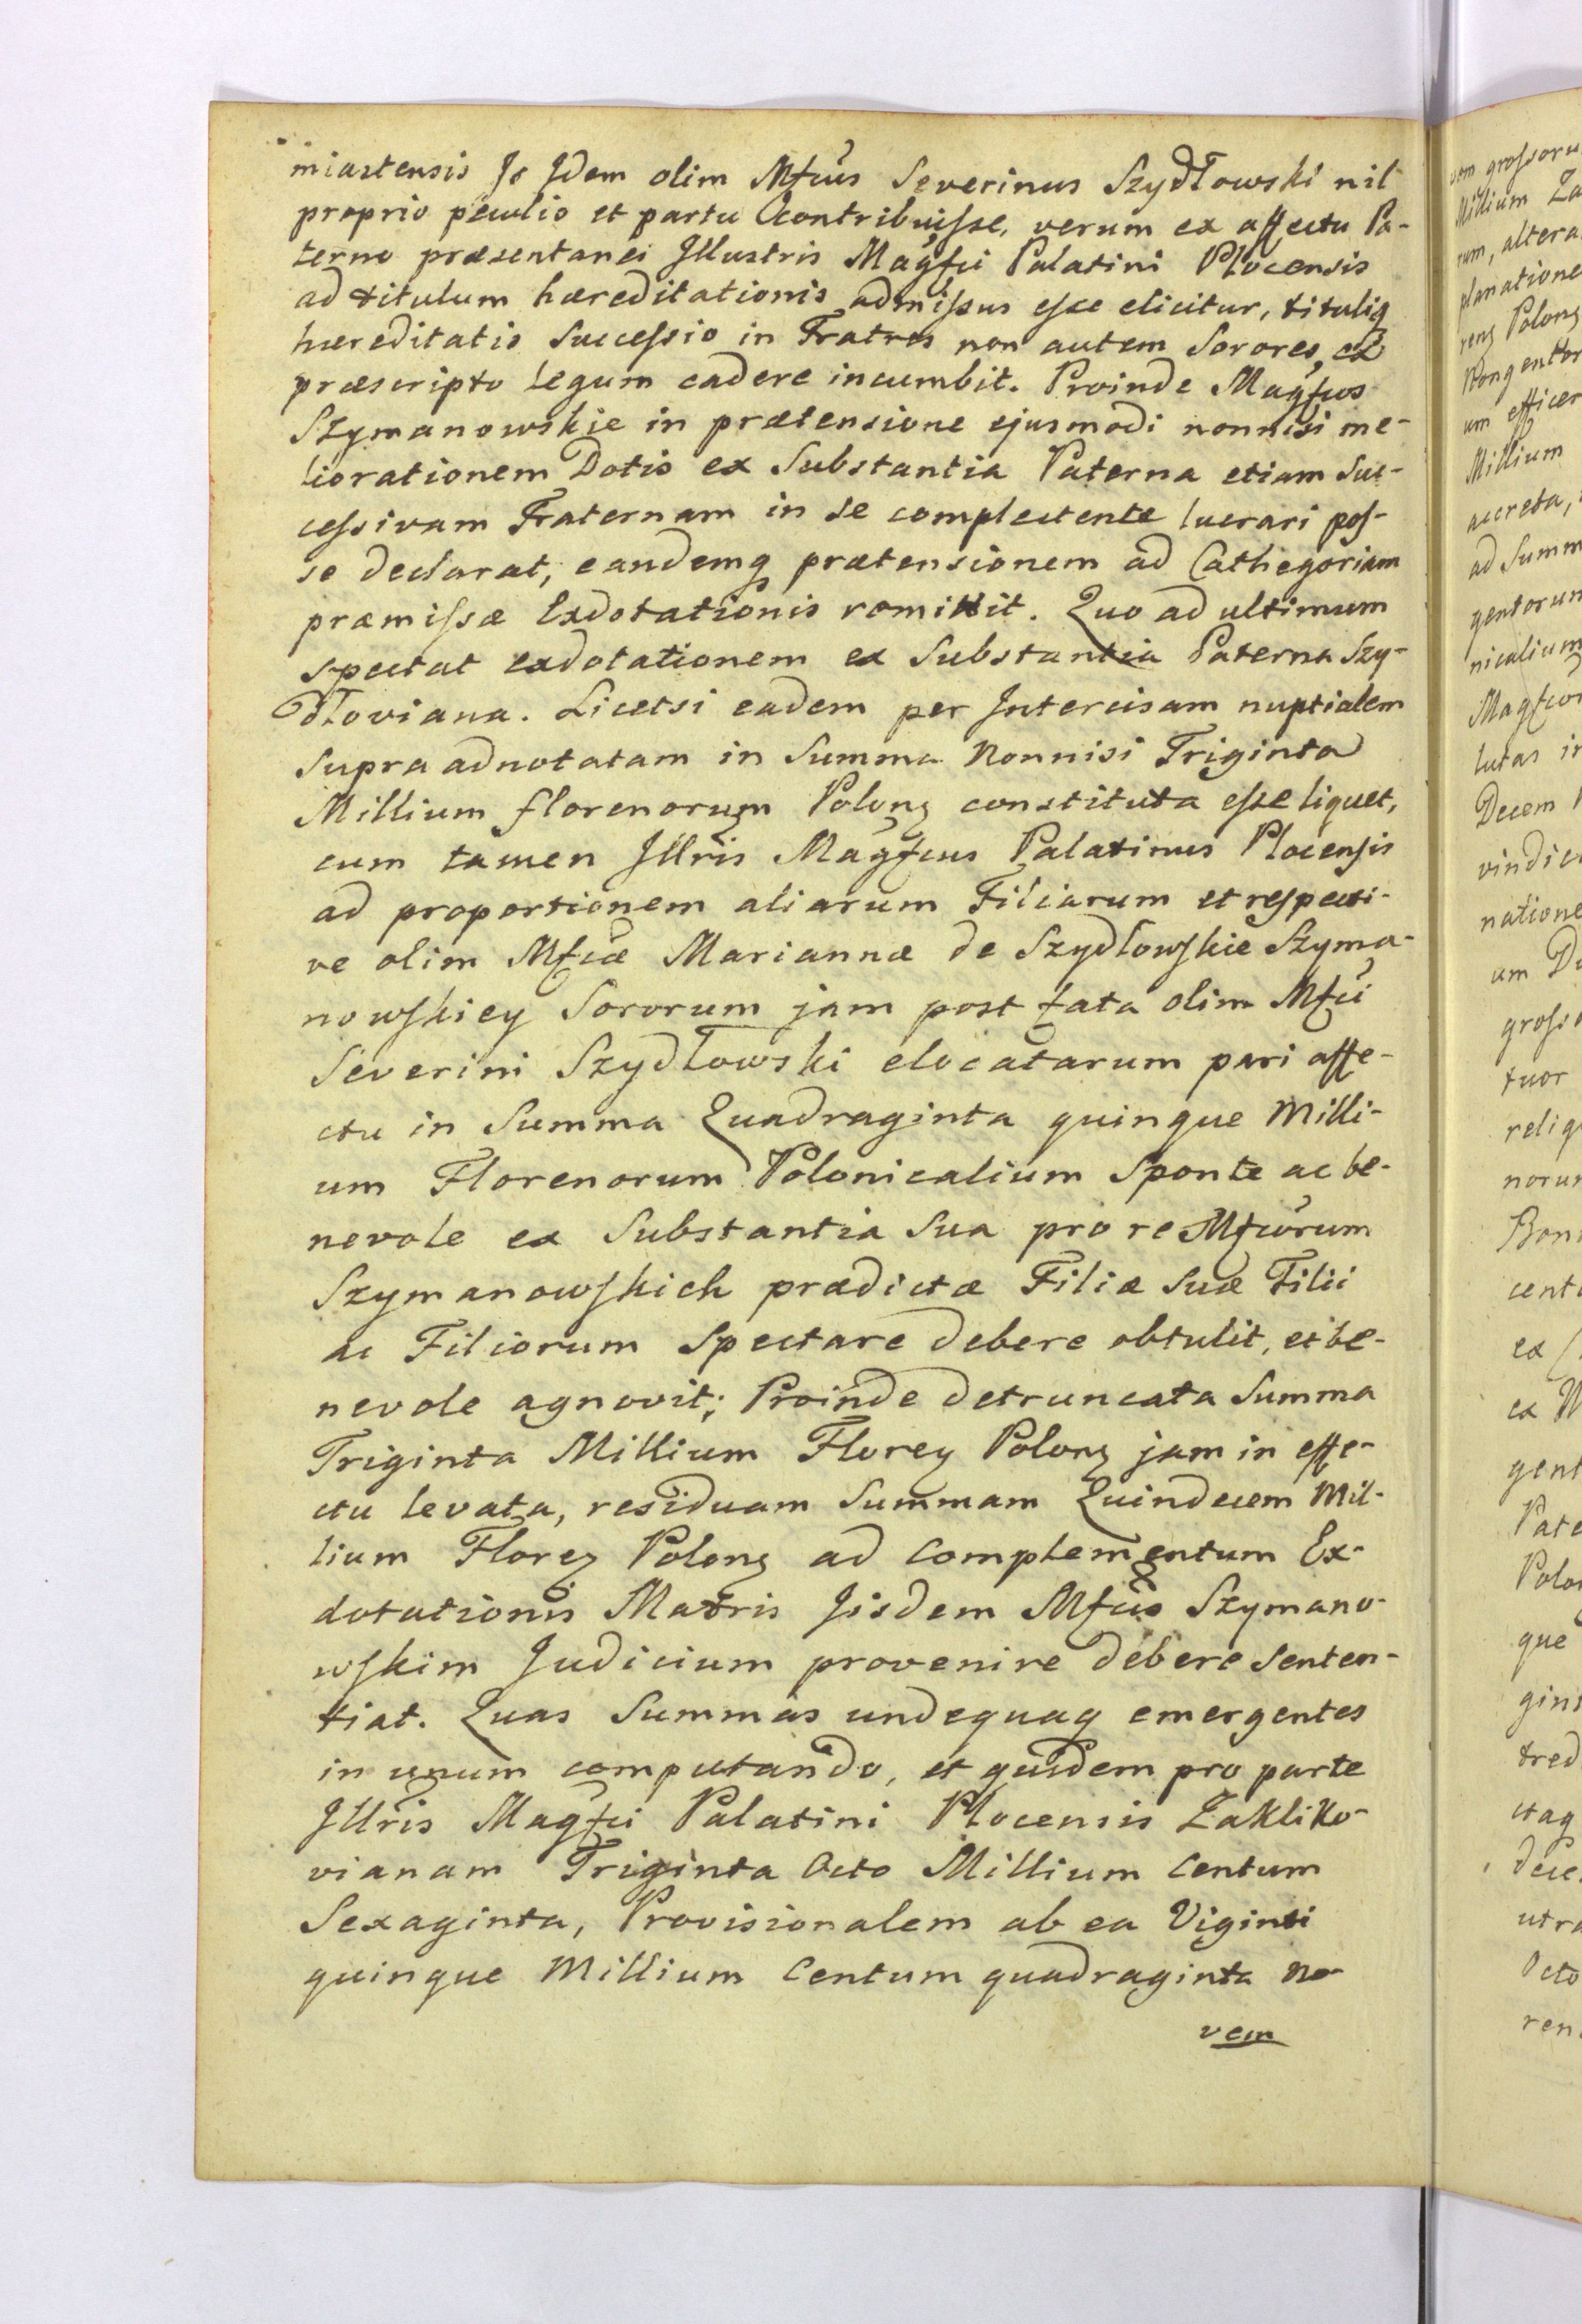 miastensis Is Idem olim Mfcus Severinus Szydłowski nil
proprio peculio et partu contribuisse, verum ex affectu Pa-
terno præsentanei Illustris Magfci Palatini Plocensis
ad titulum hæreditationis admissus esse elicitur, tituliq
hæreditatis Successio in Fratres non autem Sorores, ex
præscripto Legum cadere incumbit. Proinde Magfcos
Szymanowskie in prætensione ejusmodi nonnisi me-
liorationem Dotis ex Substantia Paterna etiam Suc-
cessivam Fraternam in se complectente lucrari pos-
se declarat, eandemq prætensionem ad Cathegoriam
præmissæ Exdotationis remittit. Quo ad ultimum
spectat exdotationem ex Substantia Paterna Szy-
dłoviana. Licetsi eadem per Intercisam nuptialem
Supra adnotatam in Summa Nonnisi Triginta
Millium florenorum Polong constituta esse liquet,
cum tamen Illris Magfcus Palatinus Plocensis
ad proportionem aliarum Filiarum et respecti-
ve olim Mfcæ Mariannæ de Szydłowskie Szyma-
nowskiey Sororum jam post fata olim Mfci
Severini Szydłowski elocatarum pari affe-
ctu in Summa Quadraginta quinque Milli-
um Florenorum Polonicalium Sponte ac be-
nevole ex Substantia Sua pro re Mfcorum
Szymanowskich prædictæ Filiæ Suæ Filii
ac Filiorum Spectare debere obtulit, et be-
nevole agnovit; Proinde detruncata Summa
Triginta Millium Floreg Polong jam in effe-
ctu levata, residuam Summam Quindecem Mil-
lium Floreg Polong ad Complementum Ex-
dotationis Matris Iisdem Mfcis Szymano-
wskim Judicium provenire debere Senten-
tiat. Quas Summas undequaq emergentes
in unum computando, et quidem pro parte
Illris Magfci Palatini Plocensis Zakliko-
vianam Triginta Octo Millium Centum
Sexaginta, Provisionalem ab ea Viginti
quinque Millium Centum quadraginta no-
vem